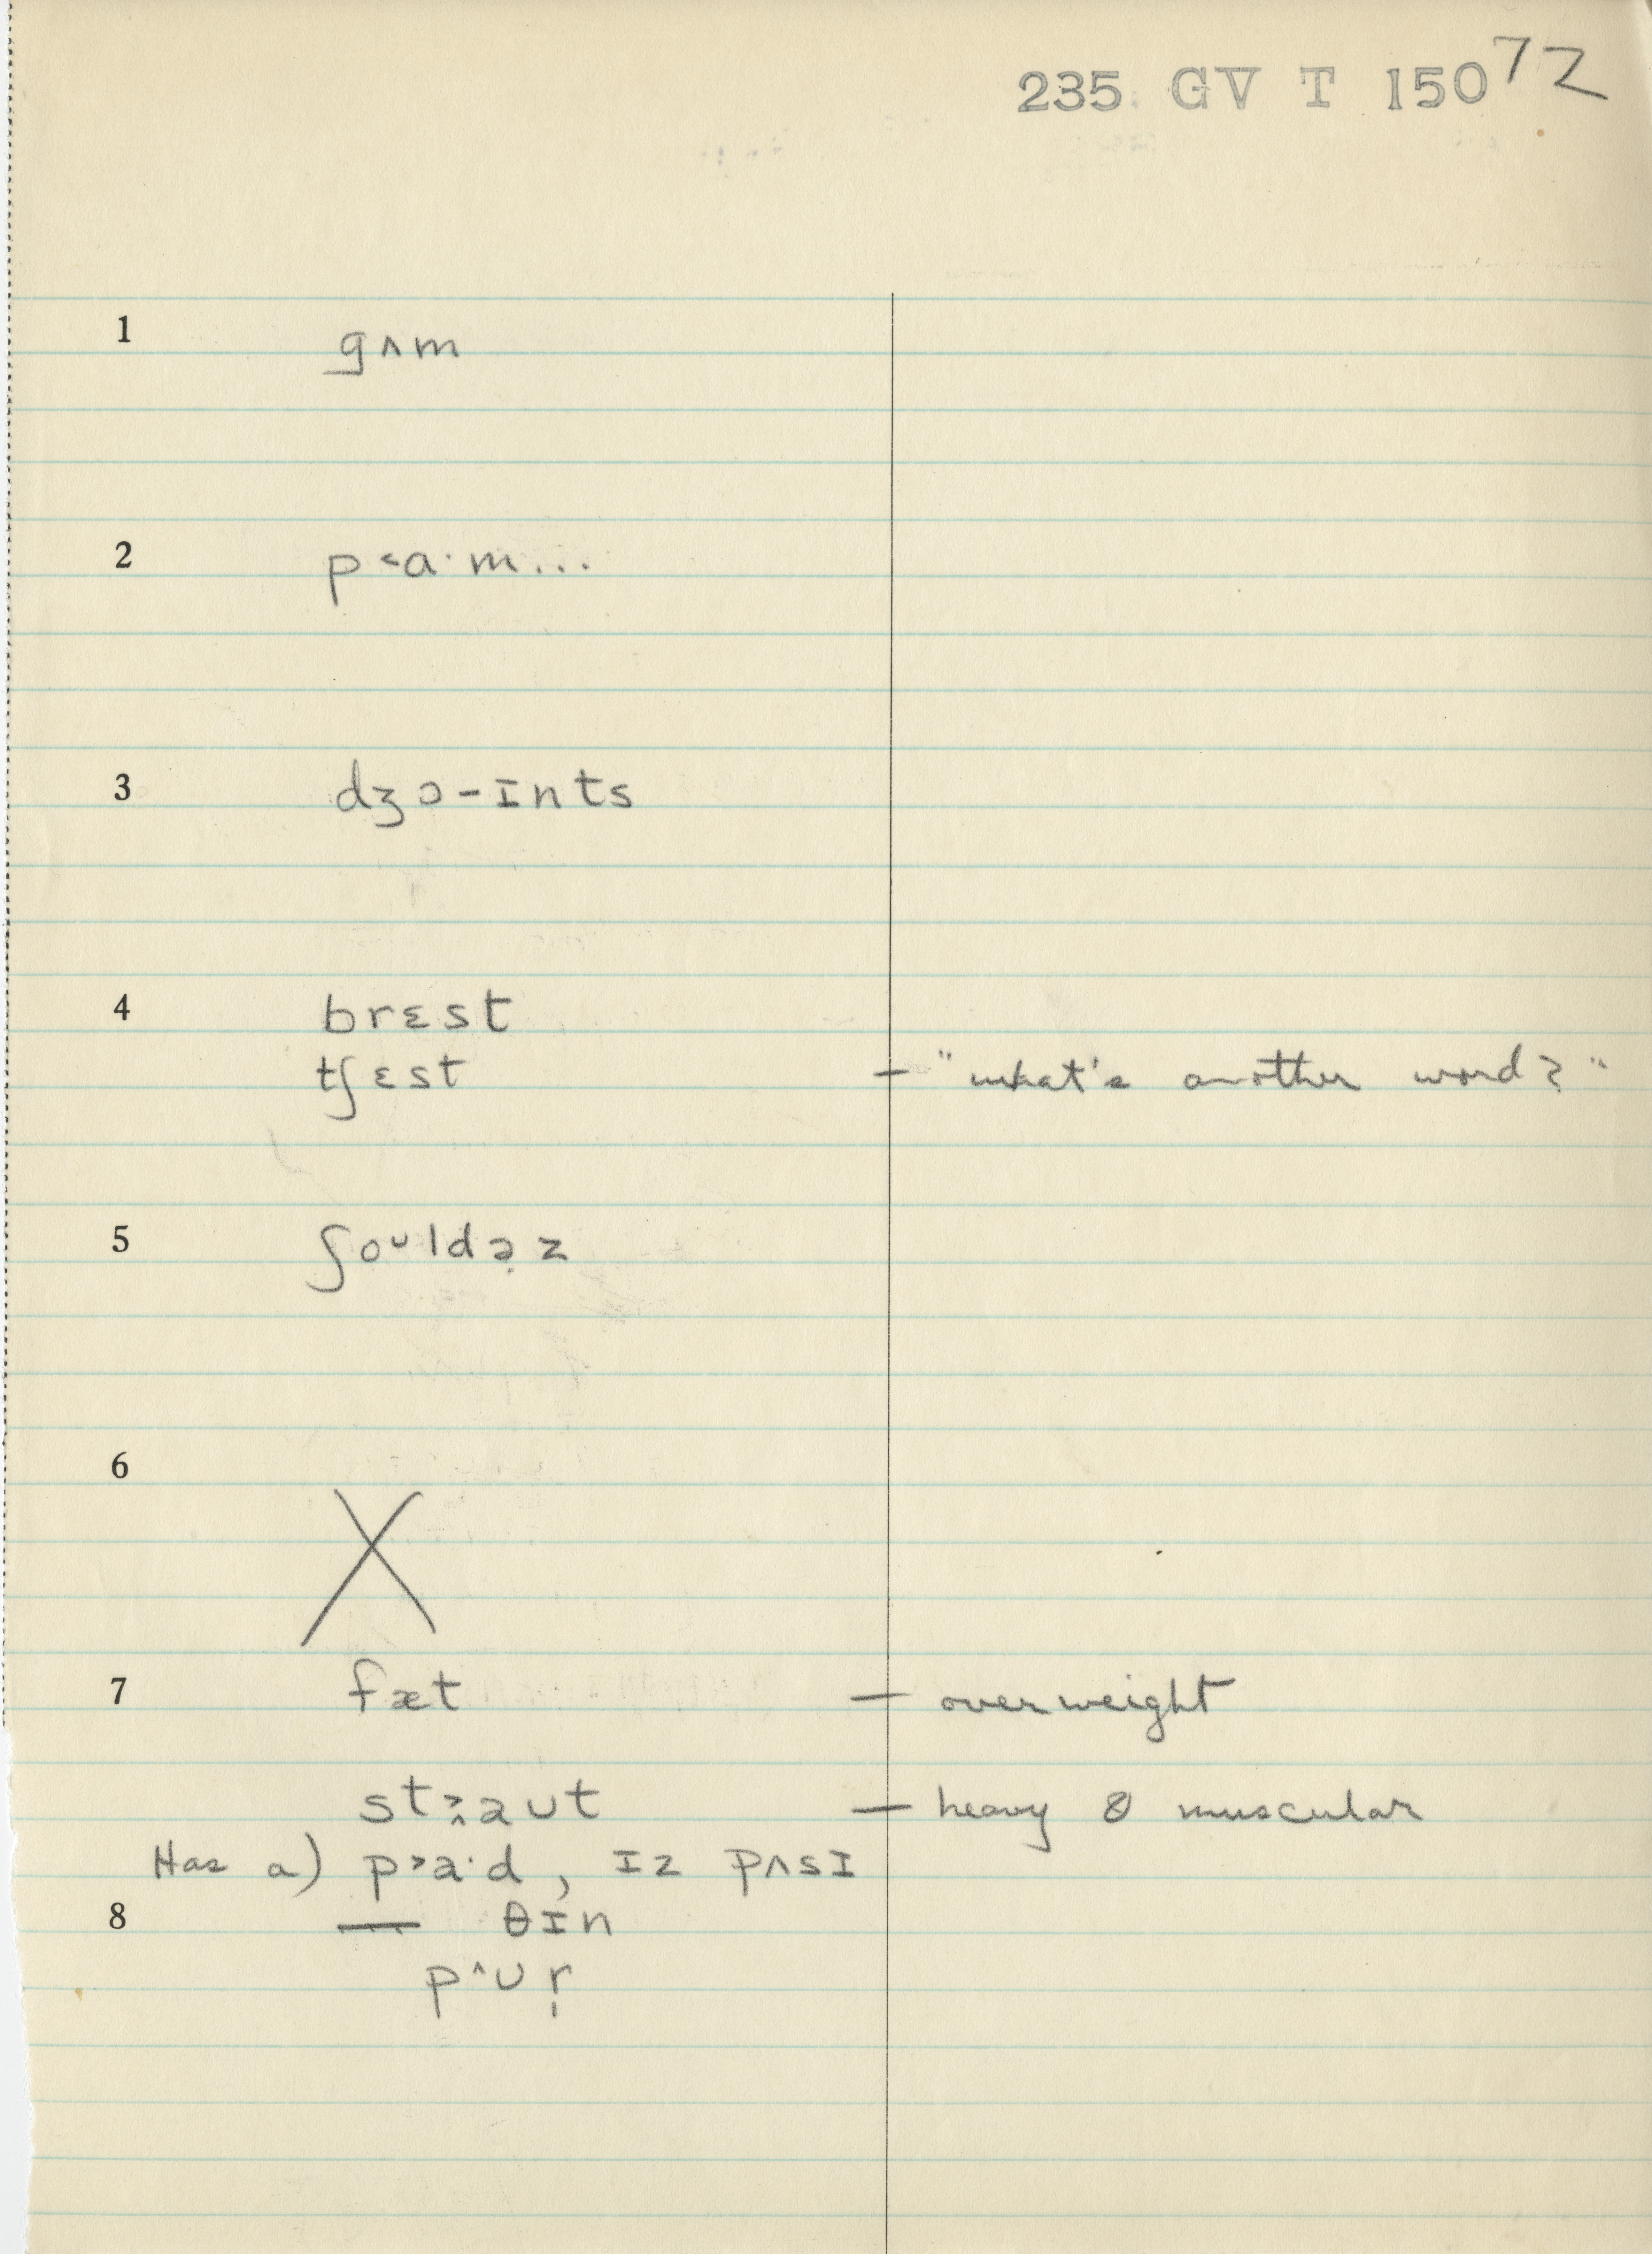 235 GV T 150 72
1 gʌm
2 p˂a·m...
3 dʒɔ-ɪnts
4 brɛst
tʃɛst – "what's another word?"
5 ʃoᴜldə̣z
6 X
7 fæt – overweight
st aᴜt – heavy & muscular
Has a) p˃a·d, ɪz pʌsɪ
8 — θɪn
p˄ᴜr̩